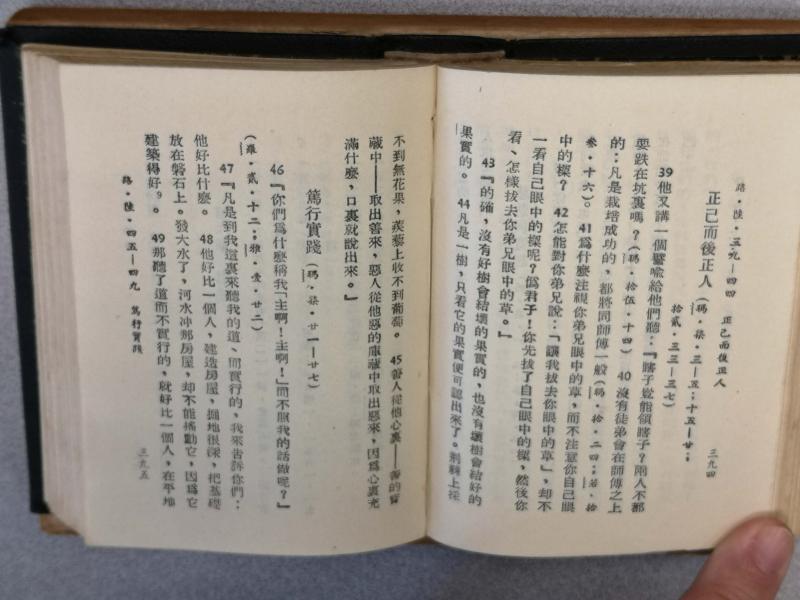 路·陸·三九—四四　正己而後正人　三九四
正己而後正人（瑪·柒·三—五；十五—廿；
拾貳·三三—三七）
39他又講一個譬喻給他們聽：『瞎子豈能領瞎子？兩人不都
要跌在坑裏嗎？（瑪·拾伍·十四）　40沒有徒弟會在師傅之上
的；凡是栽培成功的，都將同師傅一般（瑪·拾·二四；若·拾
叁·十六）。　41爲什麼注視你弟兄眼中的草，而不注意你自己眼
中的樑？　42怎能對你弟兄說：「讓我拔去你弟兄眼中的草」，却不
一看自己眼中的樑呢？僞君子！你先拔了自己眼中的樑，然後你
看、怎樣拔去你弟兄眼中的草。』
43『的確，沒有好樹會結壞的果實的，也沒有壞樹會結好的
果實的。　44凡是一樹，只看它的果實便可認出來了。荆棘上採
不到無花果，蒺藜上收不到葡萄。　45善人從他心裏——善的寶
藏中——取出善來，惡人從他惡的庫藏中取出惡來，因爲心裏充
滿什麼，口裏就說出來。』
篤行實踐（瑪·柒·廿一—廿七）
46『你們爲什麼稱我「主啊！主啊！」而不照我的話做呢？』
（羅·貳·十三；雅·壹·廿二）
47『凡是到我這裏來聽我的道、而實行的，我來告訴你們：
他好比什麼。　48他好比一個人，建造房屋，掘地很深，把基礎
放在磐石上。發大水了，河水冲那房屋，却不能搖動它，因爲它
建築得好⁹。　49那聽了道而不實行的，就好比一個人，在平地
路·陸·四五—四九　篤行實踐　三九五